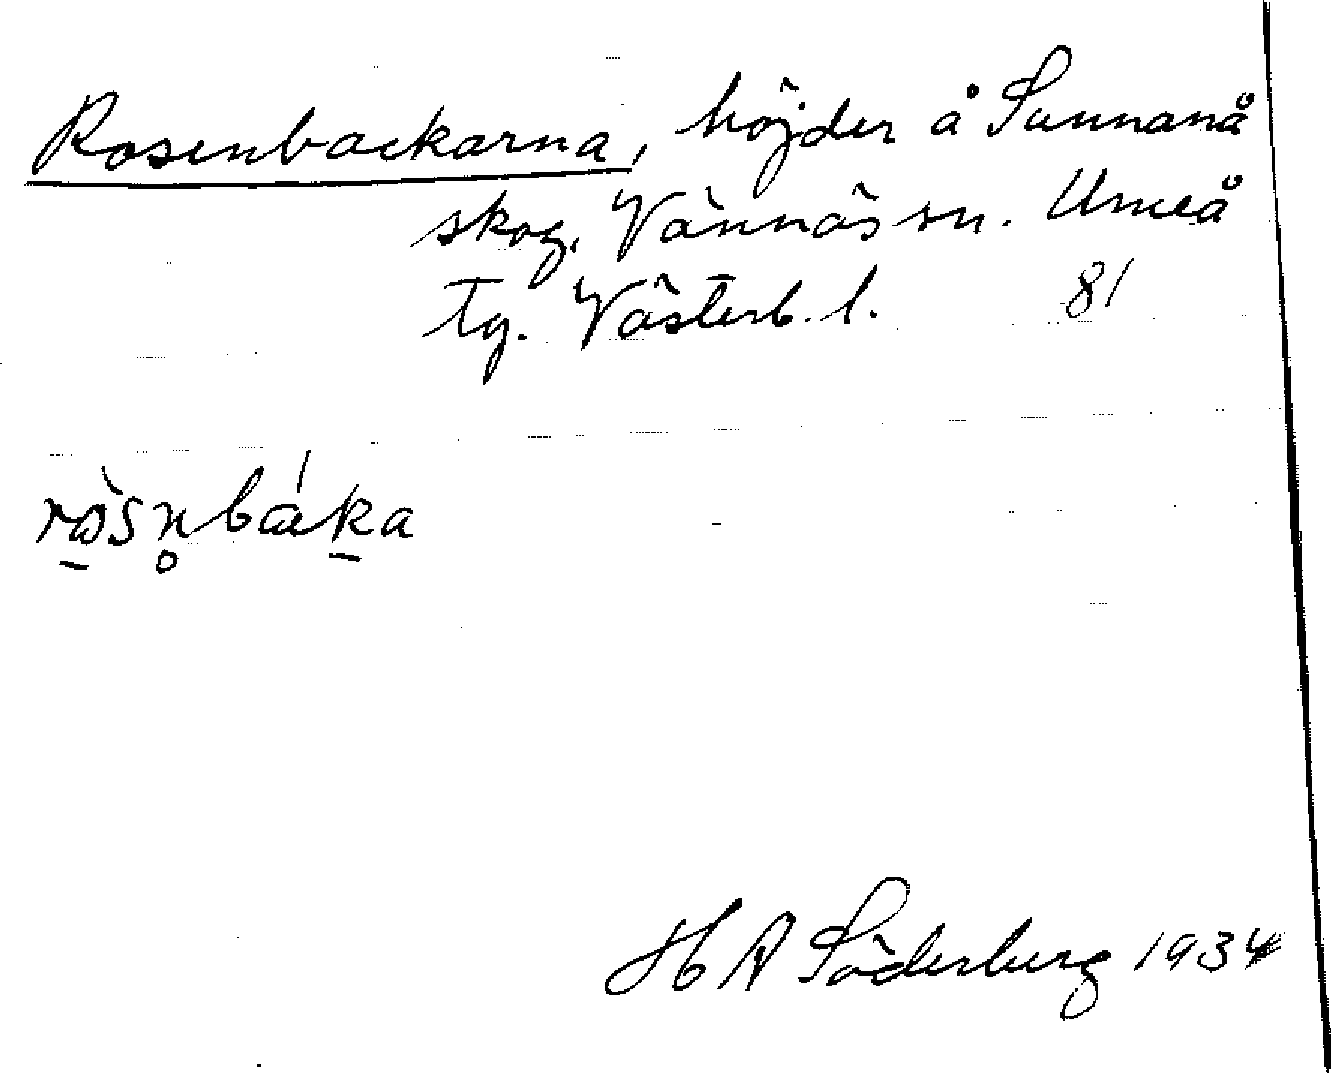 Rosenbackarna, höjder å Sunnanå
skog, Vännäs sn. Umeå
tg. Västerb. l. 81
ròsn̥báka
H A Söderberg 1934